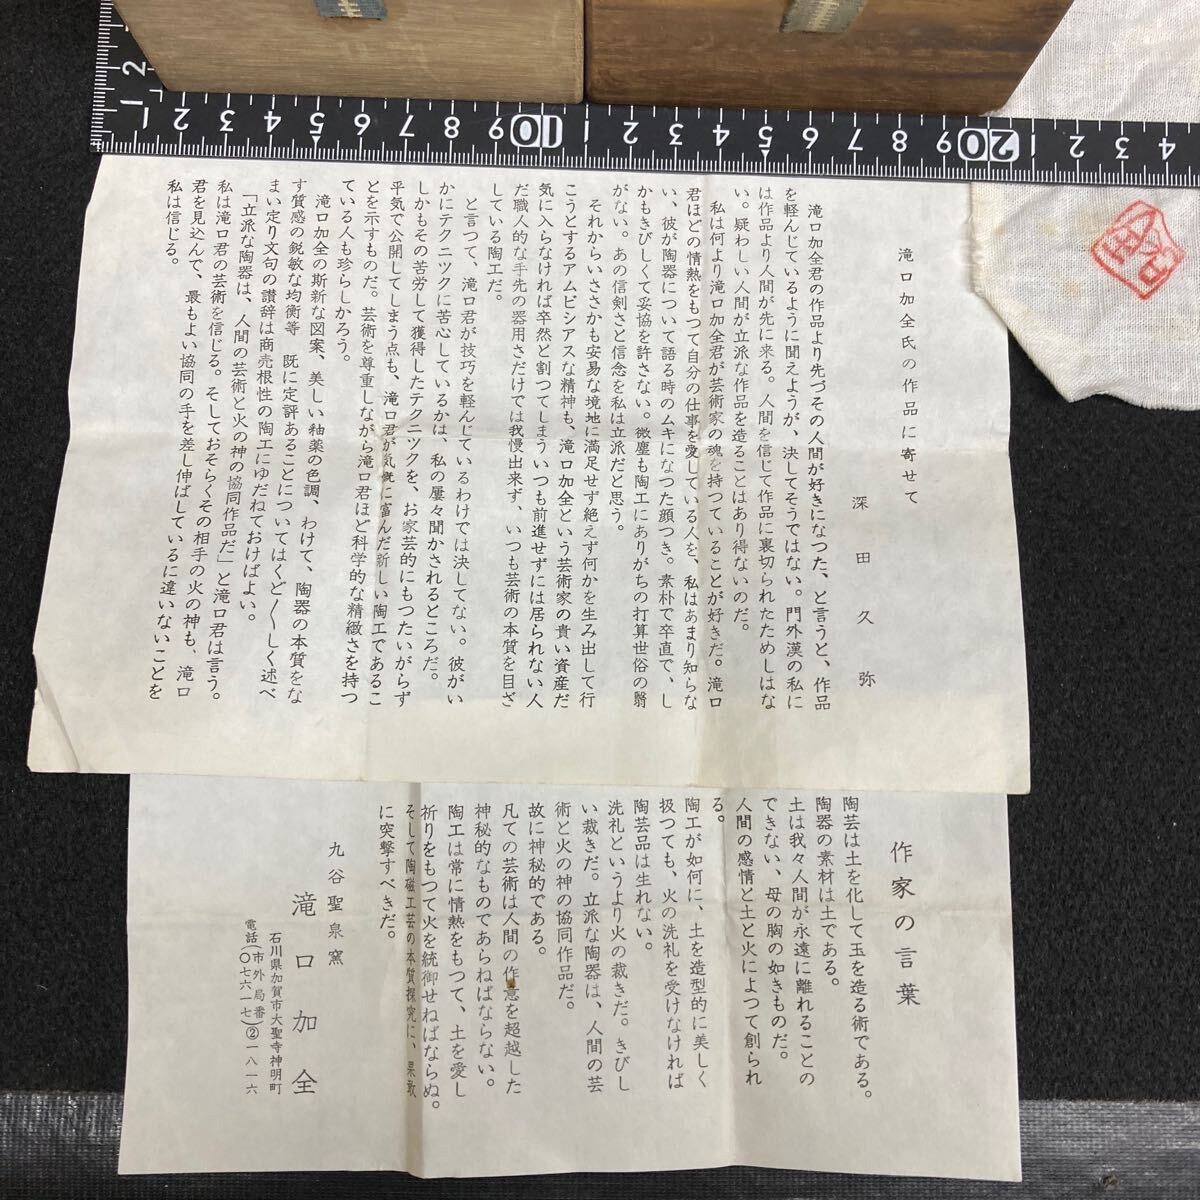 滝口加全氏の作品に寄せて
深田久弥
滝口加全君の作品より先づその人間が好きになつた、と言うと、作品
を軽んじているように聞えようが、決してそうではない。門外漢の私に
は作品より人間が先に来る。人間を信じて作品に裏切られたためしはな
い。疑わしい人間が立派な作品を造ることはあり得ないのだ。
私は何より滝口加全君が芸術家の魂を持つていることが好きだ。滝口
君ほどの情熱をもつて自分の仕事を愛している人を、私はあまり知らな
い、彼が陶器について語る時のムキになつた顔つき。素朴で卒直で、し
かもきびしくて妥協を許さない。微塵も陶工にありがちの打算世俗の翳
がない。あの信剣さと信念を私は立派だと思う。
それからいささかも安易な境地に満足せず絶えず何かを生み出して行
こうとするアムピシアスな精神も、滝口加全という芸術家の貴い資産だ
気に入らなければ卒然と割つてしまういつも前進せずには居られない人
だ職人的な手先の器用さだけでは我慢出来ず、いつも芸術の本質を目ざ
している陶工だ。
と言つて、滝口君が技巧を軽んじているわけでは決してない。彼がい
かにテクニツクに苦心しているかは、私の屢々聞かされるところだ。
しかもその苦労して獲得したテクニツクを、お家芸的にもつたいがらず
平気で公開してしまう点も、滝口君が気慨に富んだ新しい陶工であるこ
とを示すものだ。芸術を尊重しながら滝口君ほど科学的な精緻さを持つ
ている人も珍らしかろう。
滝口加全の斯新な図案、美しい釉薬の色調、わけて、陶器の本質をな
す質感の鋭敏な均衡等 既に定評あることについてはくど〱しく述べ
まい定り文句の讃辞は商売根性の陶工にゆだねておけばよい。
「立派な陶器は、人間の芸術と火の神の協同作品だ」と滝口君は言う。
私は滝口君の芸術を信じる。そしておそらくその相手の火の神も、滝口
君を見込んで、最もよい協同の手を差し伸ばしているに違いないことを
私は信じる。
作家の言葉
陶芸は土を化して玉を造る術である。
陶器の素材は土である。
土は我々人間が永遠に離れることの
できない、母の胸の如きものだ。
人間の感情と土と火によつて創られ
る。
陶工が如何に、土を造型的に美しく
扱つても、火の洗礼を受けなければ
陶芸品は生れない。
洗礼というより火の裁きだ。きびし
い裁きだ。立派な陶器は、人間の芸
術と火の神の協同作品だ。
故に神秘的である。
凡ての芸術は人間の作意を超越した
神秘的なものであらねばならない。
陶工は常に情熱をもつて、土を愛し
祈りをもつて火を統御せねばならぬ。
そして陶磁工芸の本質探究に、果敢
に突撃すべきだ。
九谷聖泉窯
滝口加全
石川県加賀市大聖寺神明町
電話(市外局番〇七六一七)②一八一六
1 2 3 4 5 6 7 8 9 10 1 2 3 4 5 6 7 8 9 20 1 2 3 4
1 2